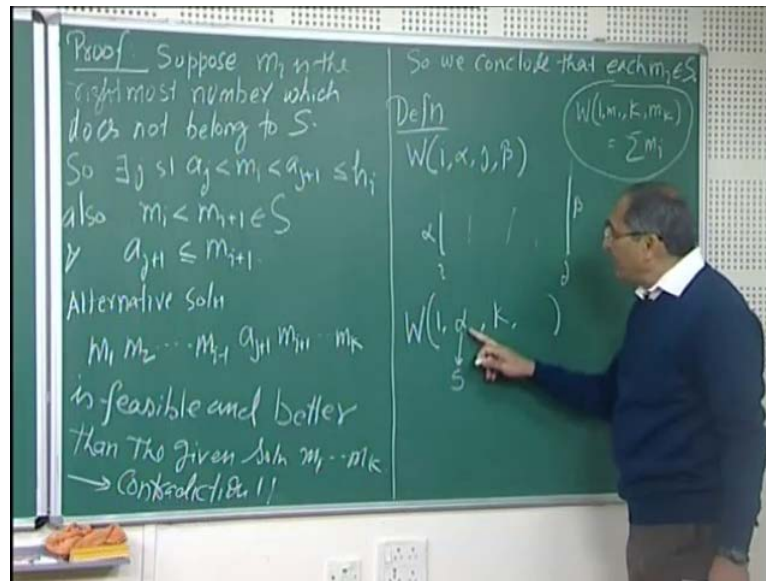 Proof. Suppose m_i is the
rightmost number which
does not belong to S.
So ∃ j st a_j < m_i < a_{j+1} ≤ h_i
also m_i < m_{i+1} ∈ S
a_{j+1} ≤ m_{i+1}.
Alternative Soln
m_1 m_2 ... m_{i-1} a_{j+1} m_{i+1} ... m_k
is feasible and better
than the given soln m_1 ... m_k
→ Contradiction!!
So we conclude that each m_i ∈ S.
Defn
W(1, m_1, k, m_k)
= ∑ m_i
W(i, α, j, β)
α β
i j
W(1, α, k, )
S